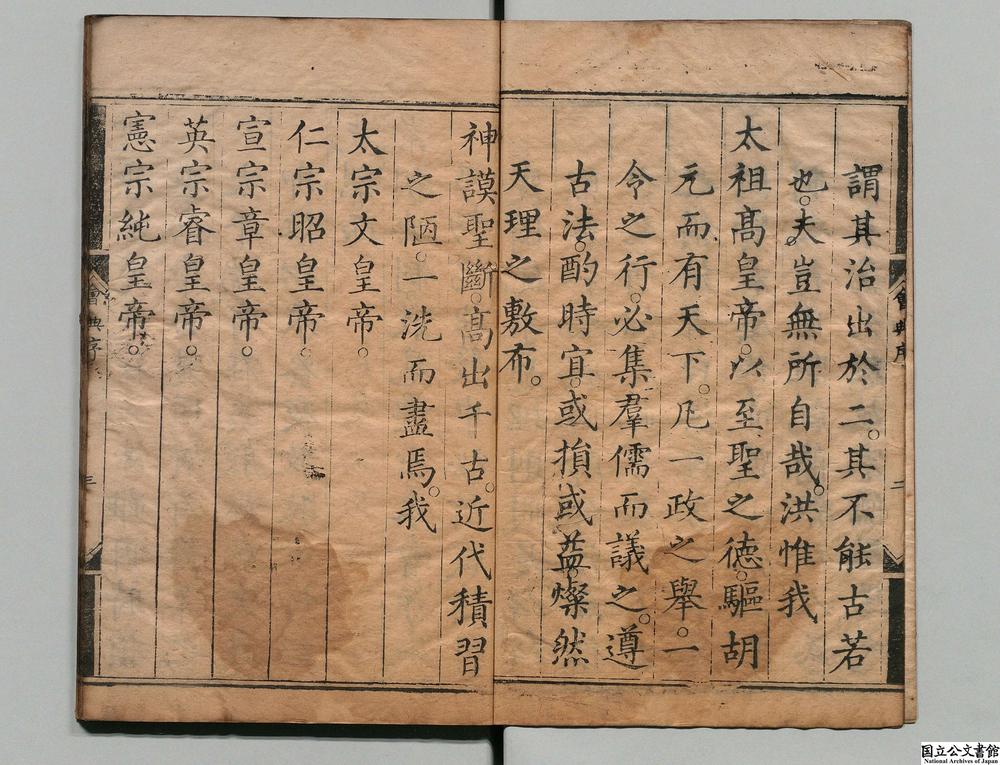 謂其治出於二。其不能古若
也。夫豈無所自哉。洪惟我
太祖高皇帝。以至聖之德。驅胡
元而有天下。凡一政之舉。一
令之行。必集羣儒而議之。遵
古法。酌時宜。或損或益。燦然
天理之敷布。
神謨聖斷。高出千古。近代積習
之陋。一洗而盡焉。我
太宗文皇帝。
仁宗昭皇帝。
宣宗章皇帝。
英宗睿皇帝。
憲宗純皇帝。
會典序
二
會典序
三
国立公文書館
National Archives of Japan